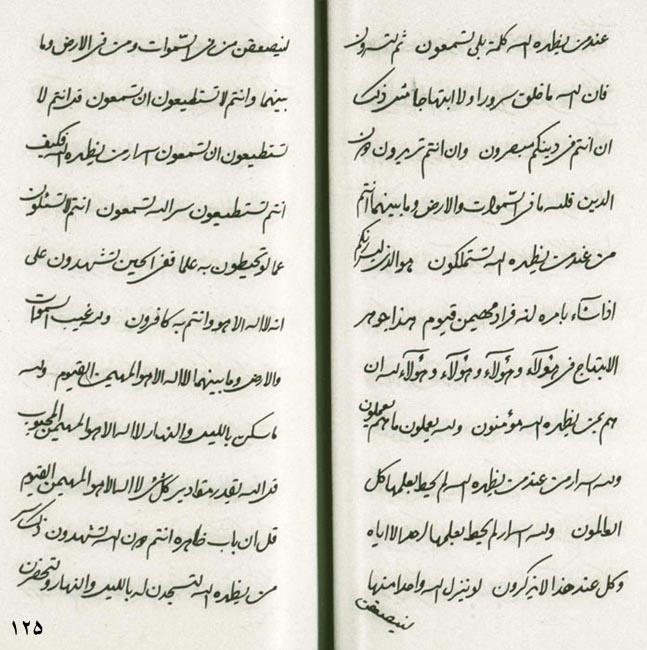 عند من يظهره الله كلمة بلى تسمعون ثم لتسرون
فان الله ما خلق سرورا ولا ابتهاجا مثل ذلك
ان انتم في دينكم مبصرون وان انتم تريدون
الدين فلله ما في السموات والارض وما بينهما انتم
من عند من يظهره الله لتستملكون هو الذي
اذا شاء بامره لنه فراد مهيمن قيوم هذا جوهر
الابتهاج في هؤلاء وهؤلاء وهؤلاء وهؤلاء لله ان
هم بمن يظهره الله مؤمنون ولله يعملون ما هم يعملون
ولله اسرار من عند من يظهره الله لم يحط بعلمها كل
العالمون ولله اسرار لم يحط بعلمها احد الا اياه
وكل عند هذا لا يذكرون لو ينزل الله واحدا منها
لينصعقن
لينصعقن من في السموات ومن في الارض وما
بينهما وانتم لا تستطيعون ان تسمعون قد انتم لا
تستطيعون ان تسمعون اسرار من يظهره الله فكيف
انتم تستطيعون سر الله تسمعون انتم لا تسئلون
عما لو تحيطون به علما ففي الحين تشهدون على
انه لا اله الا هو وانتم به كافرون ولله غيب السموات
والارض وما بينهما لا اله الا هو المهيمن القيوم ولله
ما سكن بالليل والنهار لا اله الا هو المهيمن المحبوب
قد الله يقدر مقادير كل شئ لا اله الا هو المهيمن القيوم
قل ان باب ظاهره انتم دون الله تشهدون ذلك
من يظهره الله لتسجدن له بالليل والنهار ولتحضرن
١٢٥